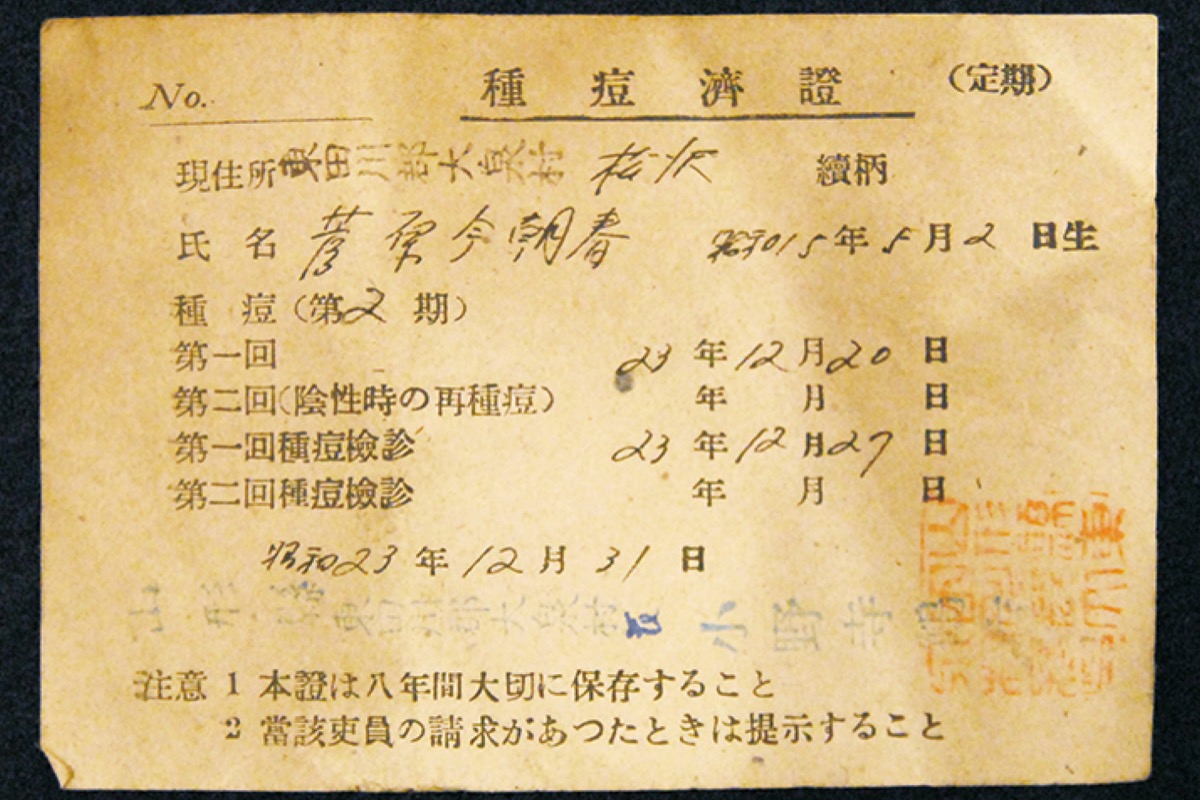 No. 種痘濟證 (定期)
現住所 東田川郡大泉村 松沢 續柄
氏名 今朝春 昭和15年5月2日生
種痘(第2期)
第一回 23年12月20日
第二回(陰性時の再種痘) 年 月 日
第一回種痘檢診 23年12月27日
第二回種痘檢診 年 月 日
昭和23年12月31日
山形縣東田川郡大泉村長 小野寺
注意 1 本證は八年間大切に保存すること
2 當該吏員の請求があつたときは提示すること